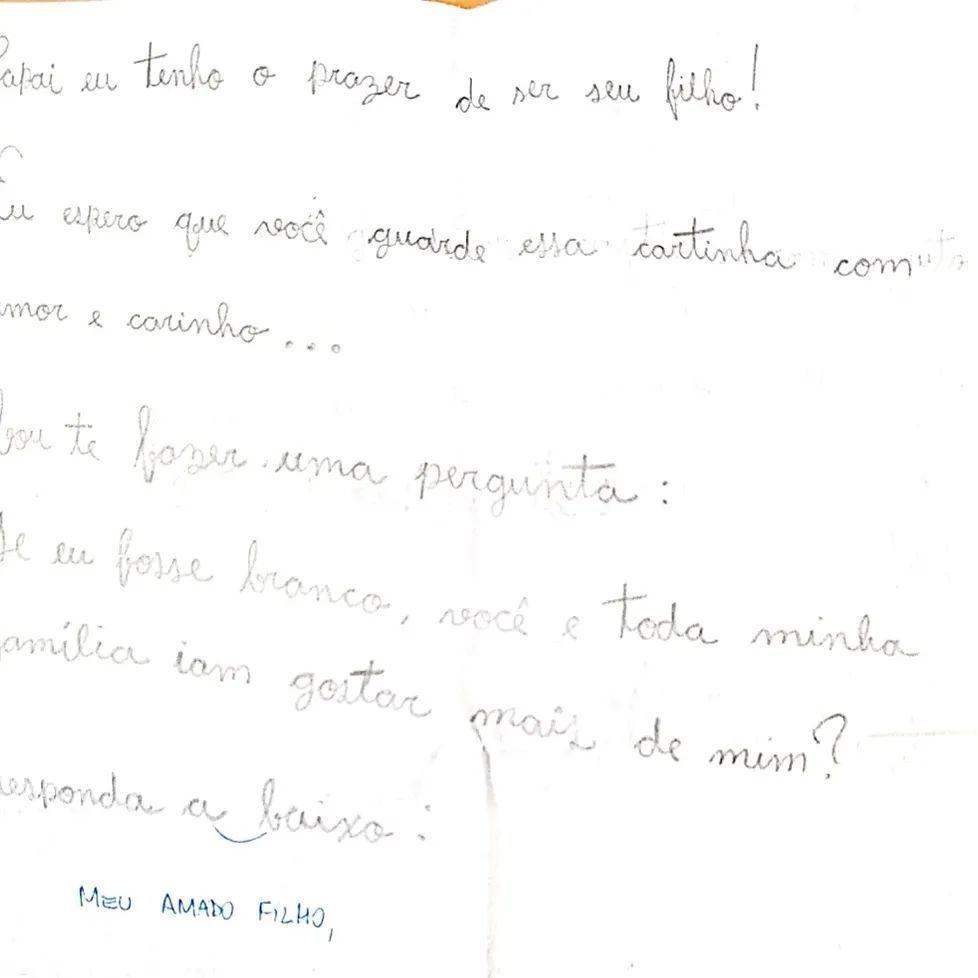 Papai eu tenho o prazer de ser seu filho!
Eu espero que você guarde essa cartinha com
amor e carinho...
Vou te fazer uma pergunta:
Se eu fosse branco, você e toda minha
família iam gostar mais de mim?
responda a baixo:
MEU AMADO FILHO,